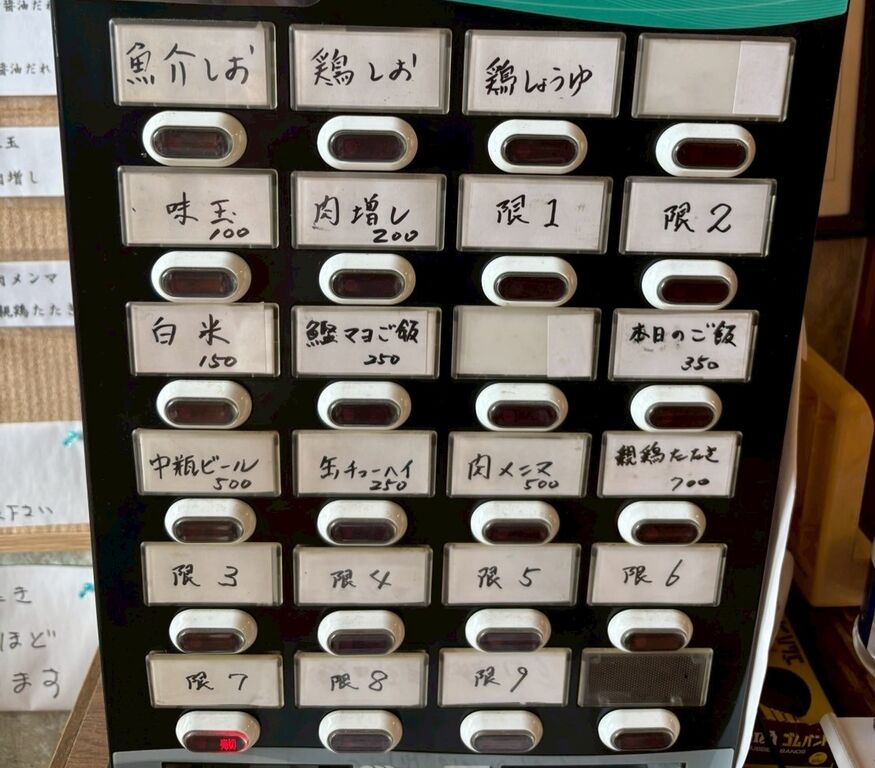 醤油だれ
醤油だれ
玉
増し
肉メンマ
親鶏たたき
下さい
き
ほど
ます
魚介しお
鶏しお
鶏しょうゆ
味玉
100
肉増し
200
限1
限2
白米
150
鰹マヨご飯
250
本日のご飯
350
中瓶ビール
500
缶チューハイ
250
肉メンマ
500
親鶏たたき
700
限3
限4
限5
限6
限7
限8
限9
売切
ゴムバンド
BANDS